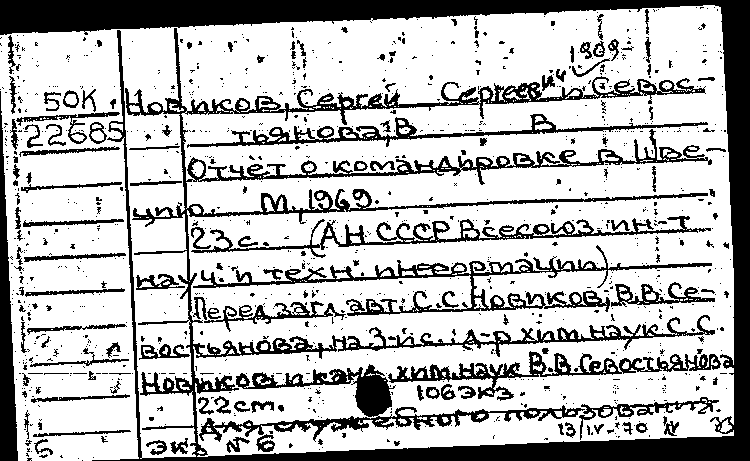 1909-
50К. Новиков, Сергей Сергеевич и Севос-
22685 тьянова, В В
Отчёт о командировке в Шве-
цию. М., 1969.
23 с. (АН СССР Всесоюз. ин-т
науч. и техн. информации).
Перед загл. авт.: С.С. Новиков, В.В. Се-
востьянова, на 3-й с.: д-р хим. наук С.С.
Новиков и канд. хим. наук В.В. Севостьянова
22 см. 106 экз.
Для служебного пользования.
Б. экз № 6 13/IV-70